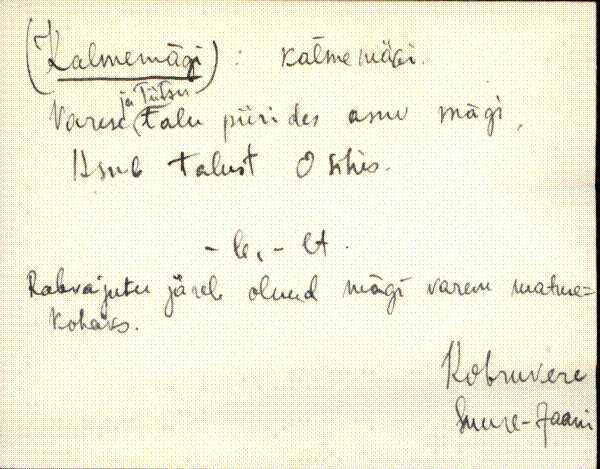 (Kalmemägi) : kalmemägi.
ja Tiitsu
Varese talu piirides asuv mägi,
Asub talust O sihis.
- le, - lt.
Rahvajutu järele olnud mägi varem matuse=
kohaks.
Kobruvere
Suure-Jaani